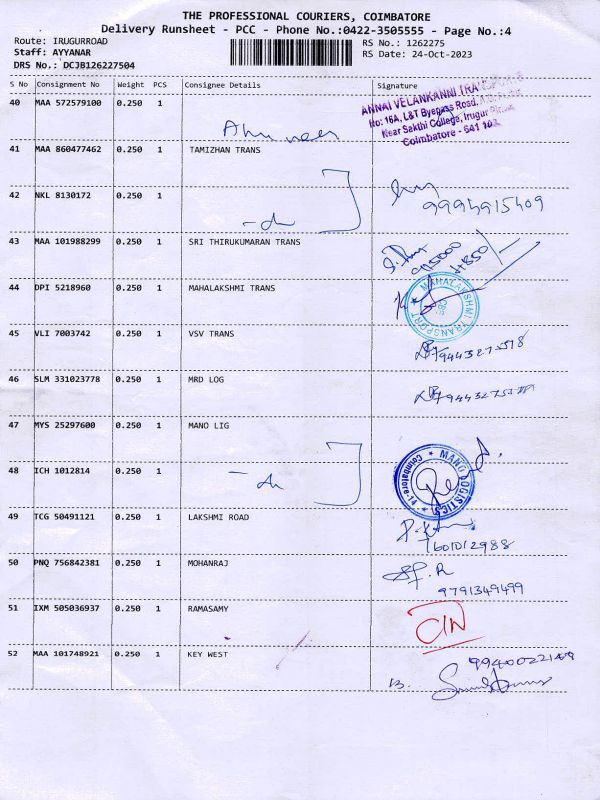 THE PROFESSIONAL COURIERS, COIMBATORE
Delivery Runsheet - PCC - Phone No.:0422-3505555 - Page No.:4
Route: IRUGURROAD
Staff: AYYANAR
DRS No.: DCJB126227504
RS No.: 1262275
RS Date: 24-Oct-2023
S No Consignment No Weight PCS Consignee Details Signature
40 MAA 572579100 0.250 1
ANNAI VELANKANNI
No: 16A, L&T Byepass Road,
Near Sakthi College, Irugur
Coimbatore - 641 103
41 MAA 860477462 0.250 1 TAMIZHAN TRANS
42 NKL 8130172 0.250 1
9994915409
43 MAA 101988299 0.250 1 SRI THIRUKUMARAN TRANS
44 DPI 5218960 0.250 1 MAHALAKSHMI TRANS
MAHALAKSHMI TRANSPORT
45 VLI 7003742 0.250 1 VSV TRANS
46 SLM 331023778 0.250 1 MRD LOG
47 MYS 25297600 0.250 1 MANO LIG
48 ICH 1012814 0.250 1
MANO LOGISTICS
Coimbatore-14
49 TCG 50491121 0.250 1 LAKSHMI ROAD
7601012988
50 PNQ 756842381 0.250 1 MOHANRAJ
9791349499
51 IXM 505036937 0.250 1 RAMASAMY
52 MAA 101748921 0.250 1 KEY WEST